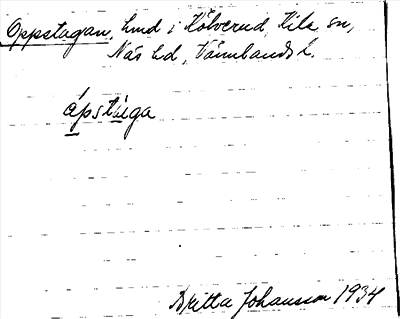 Oppstugan, hmd i Kölverud, Kila sn,
Näs hd, Värmlands l.
åpstuga
Britta Johansson 1934